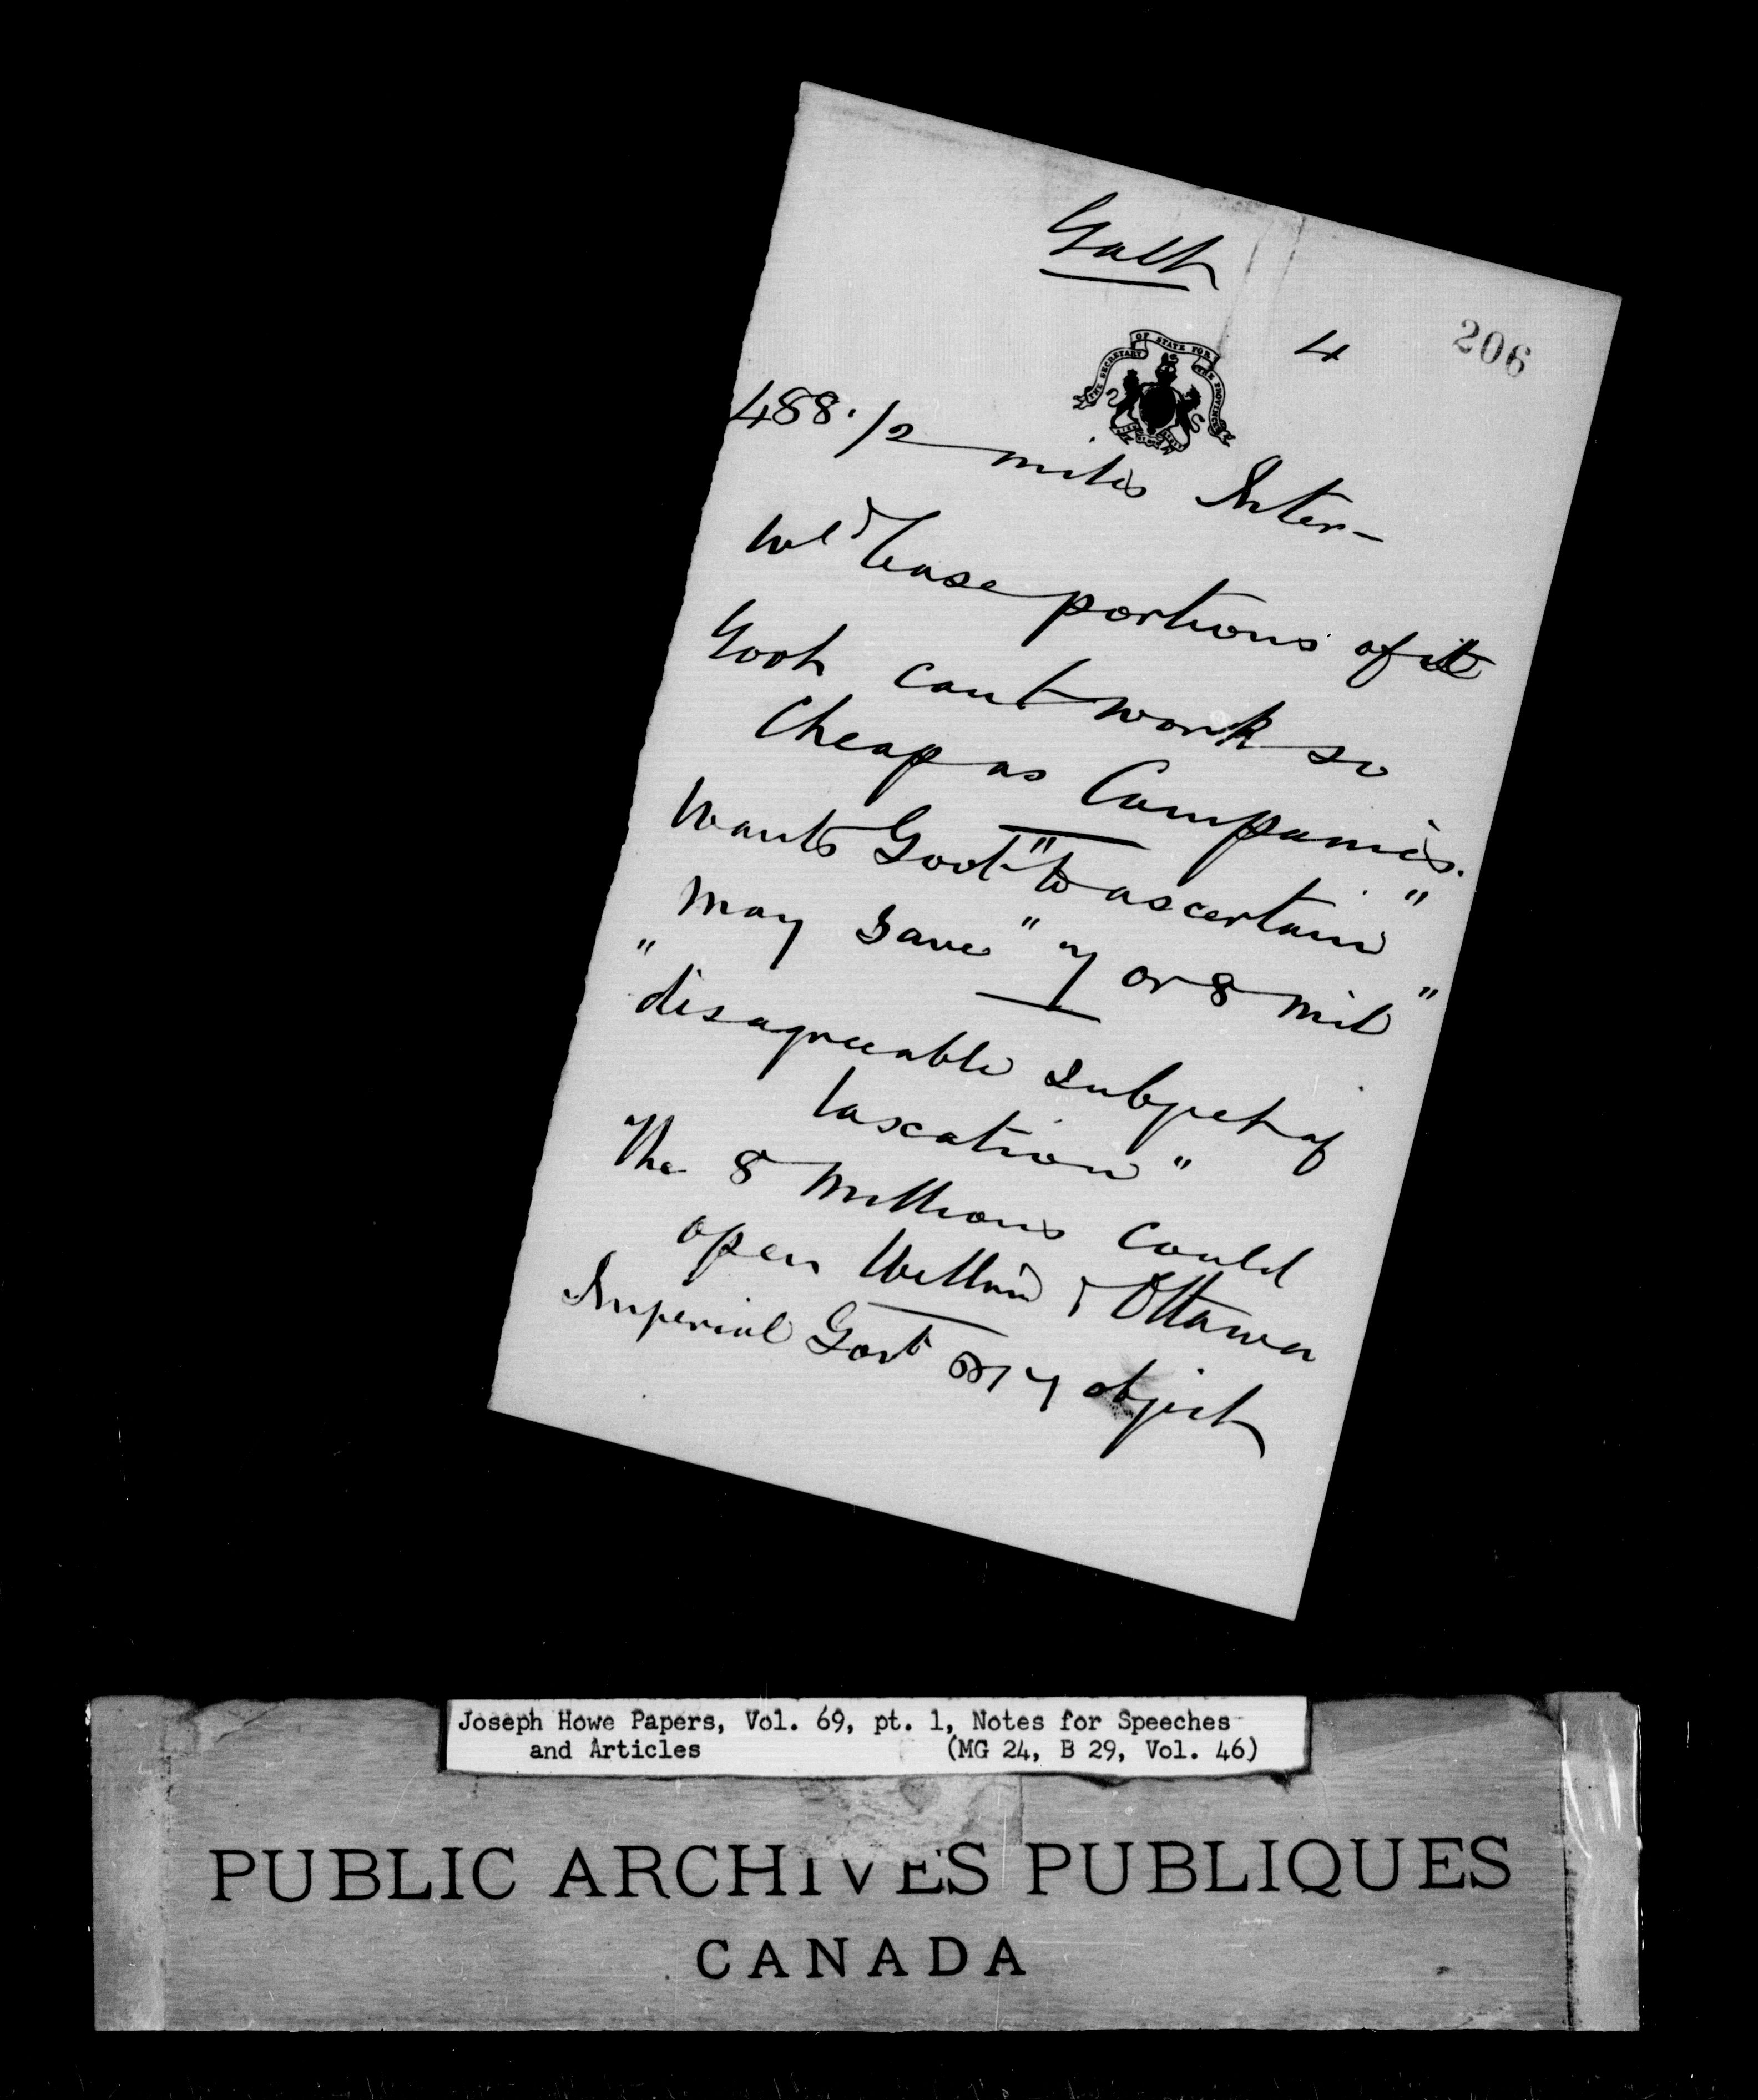 Galt
4
206
THE SECRETARY OF STATE FOR THE PROVINCES
488 1/2 miles Inter-
Wd lease portions of it
Govt cant work so
Cheap as Companies.
Wants Govt "to ascertain"
may save "7 or 8 mil"
"disagreeable subject of
taxation"
The 8 Millions could
open Welland & Ottawa
Imperial Govt object
Joseph Howe Papers, Vol. 69, pt. 1, Notes for Speeches
and Articles (MG 24, B 29, Vol. 46)
PUBLIC ARCHIVES PUBLIQUES
CANADA